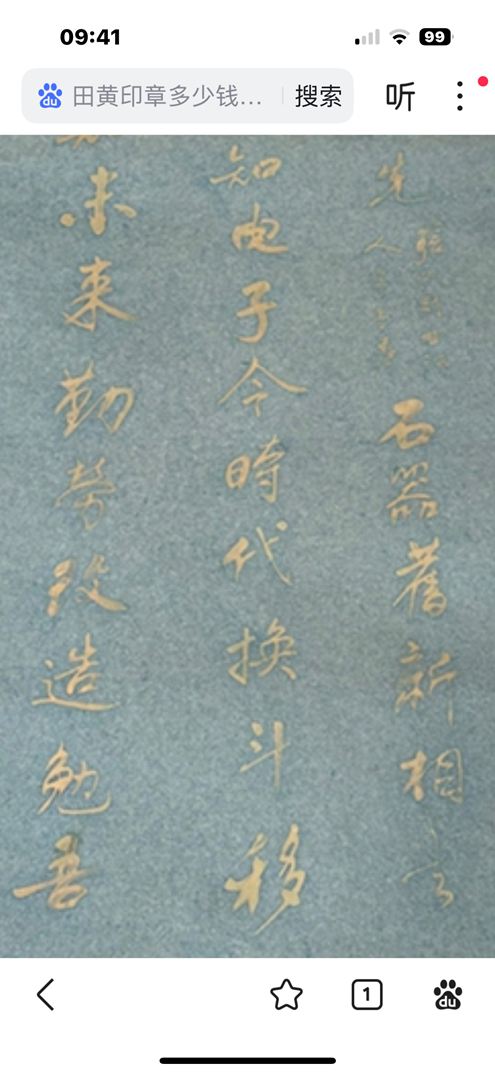 09:41
99
田黄印章多少钱... 搜索 听
先
石器舊新相
知电子今時代換斗移
未来勤勞改造勉吾
1
du